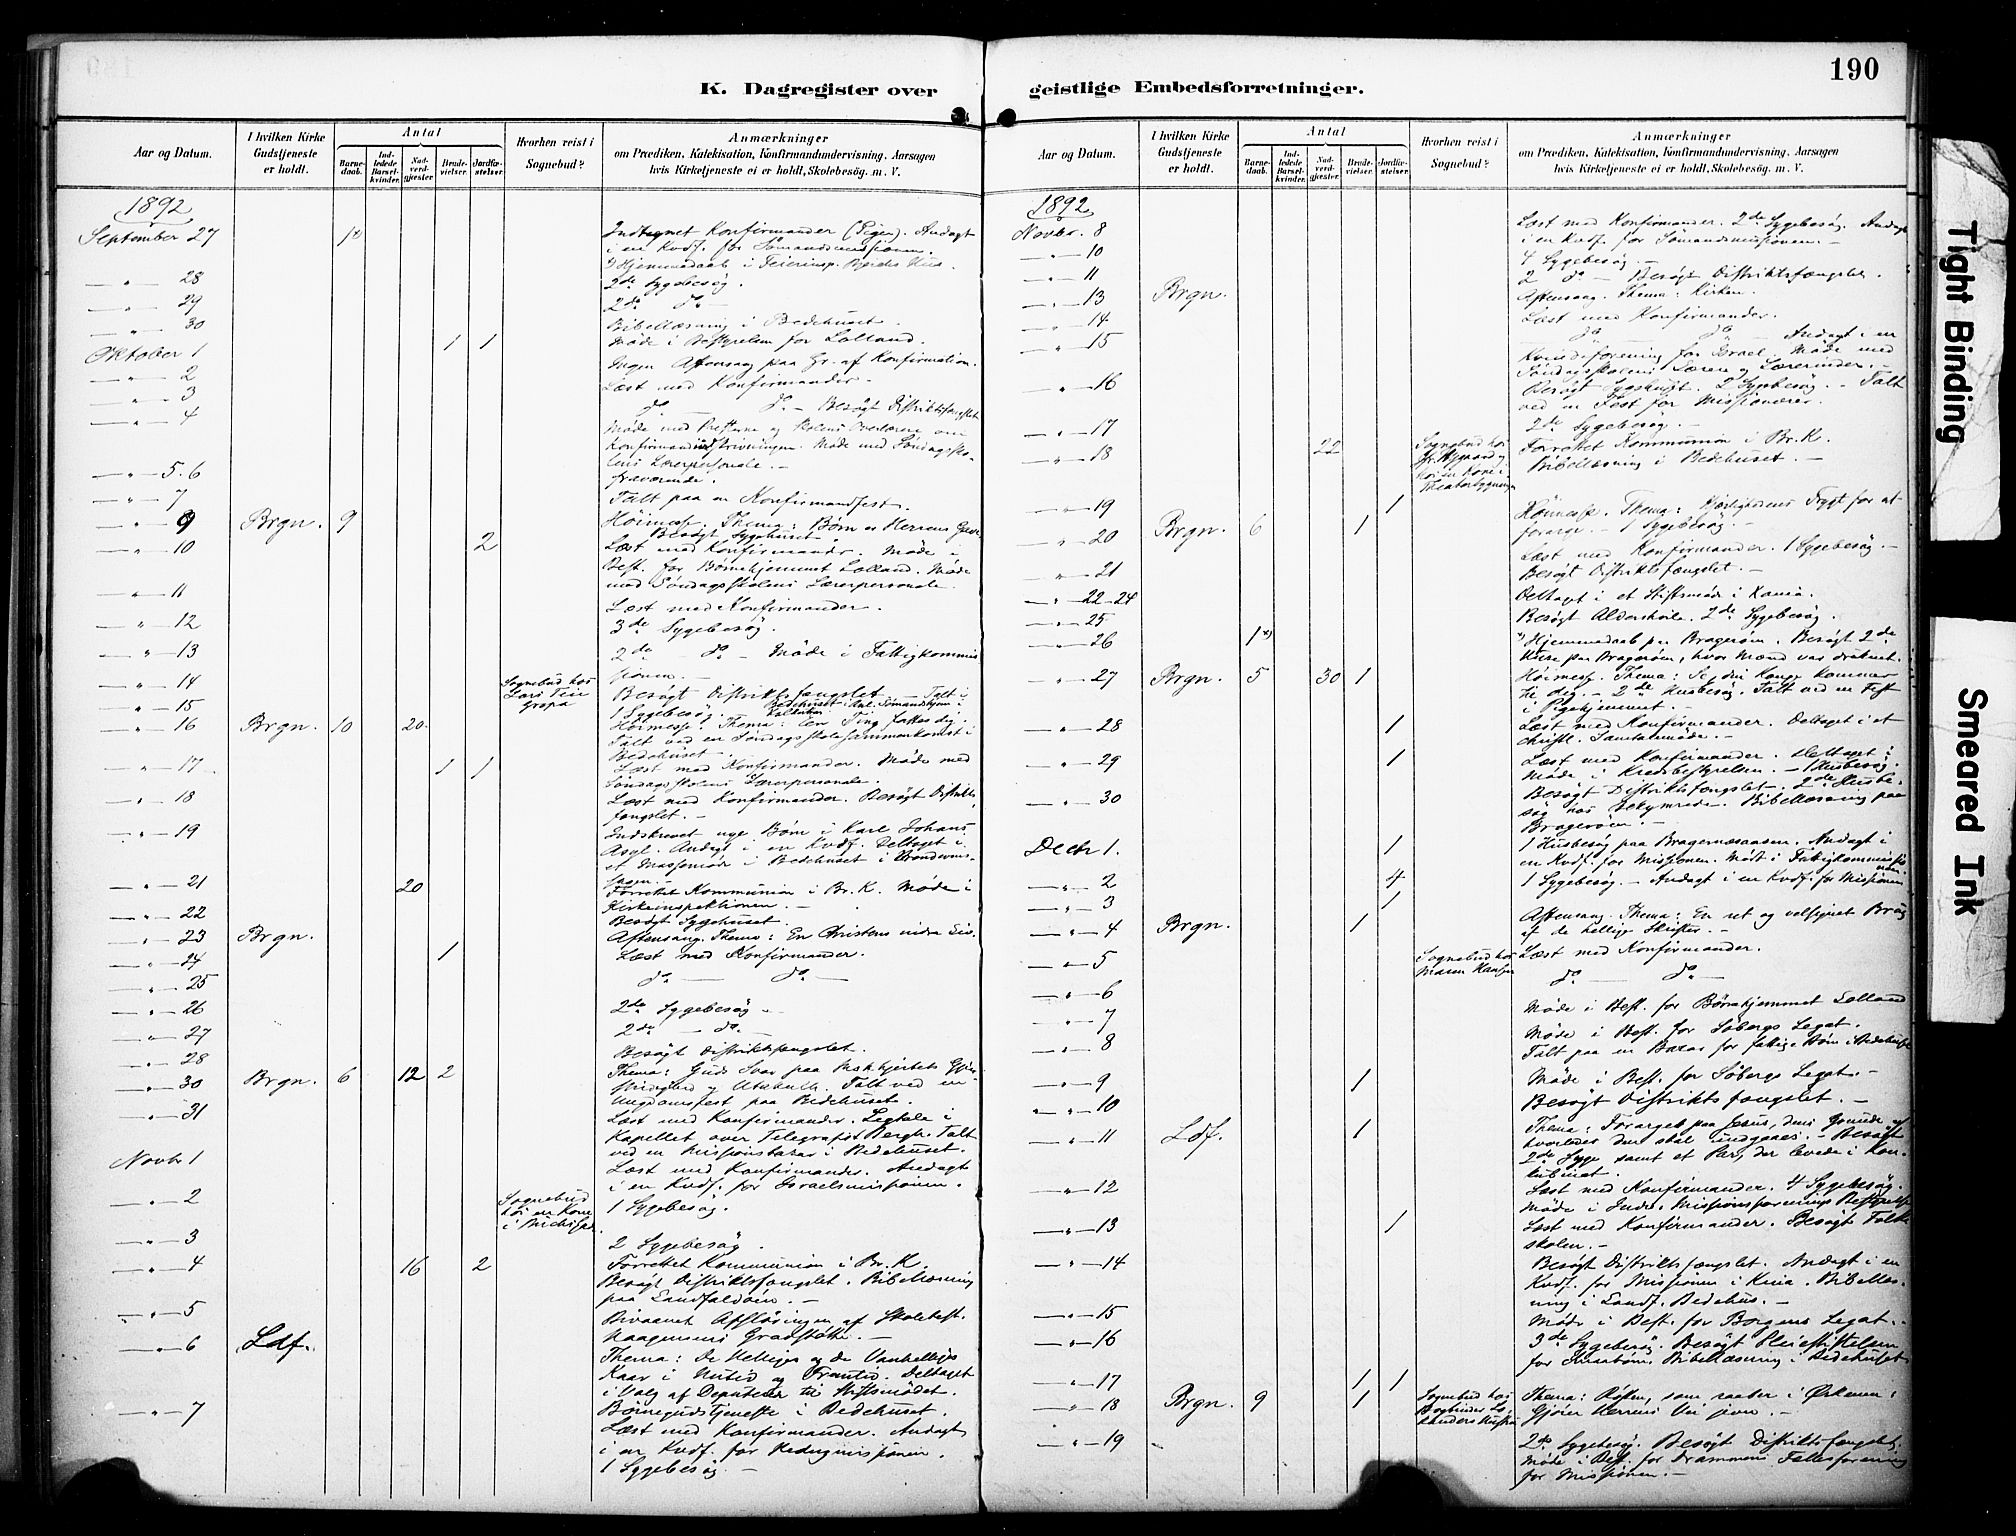 190
K. Dagregister over geistlige Embedsforretninger.
Aar og Datum.
I hvilken Kirke Gudstjeneste er holdt.
Antal
Barnedaab.
Indledede Barselkvinder.
Nadverdgjester
Brudevielser.
Jordfæstelser.
Hvorhen reist i Sognebud?
Anmærkninger
om Prædiken, Katekisation, Konfirmandundervisning, Aarsagen
hvis Kirketjeneste ei er holdt, Skolebesög. m. V.
1892
September 27 1x) Indtegnet Konfirmander (Piger). Andagt
i en Kvdf. for Sömandsmissionen.
x) Hjemmedaab i
— " — 28 2de Sygebesög.
— " — 29 2de do
— " — 30 Bibellæsning i Bedehuset.
Oktober 1 1 1 Möde i Bestyrelsen for Lolland.
— " — 2 Ingen Aftensang paa Gr. af Konfirmation.
— " — 3 Læst med Konfirmander.
— " — 4 do — do — Besögt Distriktsfængslet
Möde med Presterne og Skolens Overlærere om
Konfirmandindskrivningen. Möde med Söndagssko-
lens Lærerpersonale. —
— " — 5. 6 fraværende.
— " — 7 Talt paa en Konfirmandfest.
— " — 9 Brgn. 9 Höimesse. Thema: Børn er Herrens Gave
Besögt Sygehuset.
— " — 10 2 Læst med Konfirmander. Möde i
Best. for Børnehjemmet Lolland. Möde
med Söndagsskolens Lærerpersonale.
— " — 11 Læst med Konfirmander.
— " — 12 3de Sygebesög.
— " — 13 2de — do — Möde i Fattigkommis
sionen.
— " — 14 Sognebud hos Lars Teie Gropa Besögt Distriktsfængslet. — Talt i
Bedehuset
— " — 15 1 Sygebesög.
— " — 16 Brgn. 10 20 Höimesse. Thema: Een Ting fattes dig.
Talt ved en Söndagsskolesammenkomst i
Bedehuset.
— " — 17 1 1 Læst med Konfirmander. Möde med
Söndagsskolens Lærerpersonale.
— " — 18 Læst med Konfirmander. Besögt Distrikts
fængslet. —
— " — 19 Indskrevet nye Børn i Karl Johans
Asyl. Andagt i en Kvdf. Deltaget i
et i Bedehuset i
— " — 21 20 Forrettet Kommunion i Br. K. Möde i
Kirkeinspektionen. —
— " — 22 Besögt Sygehuset.
— " — 23 Brgn. Aftensang. Thema: En Christens indre Liv.
— " — 24 1 Læst med Konfirmander.
— " — 25 do — do —
— " — 26 2de Sygebesög.
— " — 27 2de — do. —
— " — 28 Besögt Distriktsfængslet.
— " — 30 Brgn. 6 12 2 Thema: Guds Svar paa
Talt ved en
Ungdomsfest paa Bedehuset.
— " — 31 Læst med Konfirmander. Ligtale i
Kapellet over Telegrafist Bergh. Talt
ved en Missionsbazar i Bedehuset.
Novbr 1 Læst med Konfirmander. Andagt
i en Kvdf. for Israelsmissionen.
— " — 2 Sognebud hos en Kone i 1 Sygebesög.
— " — 3 2 Sygebesög.
— " — 4 16 2 Forrettet Kommunion i Br. K.
Besögt Distriktsfængslet. Bibellæsning
paa Landfaldöen. —
— " — 5 Bivaanet Afslöringen af Skolebest.
Gravstötte. —
— " — 6 Ldf. Thema: De Helliges og de Vanhelliges
Kaar i Nutid og Fremtid. Deltaget
i Valg af Deputerer til Stiftsmödet.
Börnegudstjeneste i Bedehuset.
— " — 7 Læst med Konfirmander. Andagt
i en Kvdf. for Hedningmissionen.
1 Sygebesög —
Aar og Datum.
I hvilken Kirke Gudstjeneste er holdt.
Antal
Barnedaab.
Indledede Barselkvinder.
Nadverdgjester.
Brudevielser.
Jordfæstelser.
Hvorhen reist i Sognebud?
Anmærkninger
om Prædiken, Katekisation, Konfirmandundervisning, Aarsagen
hvis Kirketjeneste ei er holdt, Skolebesög. m. V.
1892
Novbr. 8 Læst med Konfirmander. 2de Sygebesög. Andagt
i en Kvdf. for Sömandsmissionen. —
— " — 10 4 Sygebesög. —
— " — 11 2 do — Besögt Distriktsfængslet.
— " — 13 Brgn. Aftensang. Thema: Kirken.
— " — 14 Læst med Konfirmander.
— " — 15 do do — Andagt i en
Kvindeforening for Israel. Möde med
Söndagsskolens Lærere og Lærerinder. —
— " — 16 Besögt Sygehuset. 2 Sygebesög. — Talt
ved en Fest for Missionærer.
— " — 17 2de Sygebesög.
— " — 18 22 Sognebud hos Forrettet Kommunion i Br. K.
Bibellæsning i Bedehuset. —
— " — 19 1
— " — 20 Brgn. 6 1 Höimesse. Thema: Kjærlighedens Frygt for at
forarge. 1 Sygebesög. —
— " — 21 Læst med Konfirmander. 1 Sygebesög. —
Besögt Distriktsfængslet. —
— " — 22-24 Deltaget i et Stiftsmöde i Kania.
— " — 25 Besögt Alderskole. 2de Sygebesög.
— " — 26 1x) x) Hjemmedaab paa Bragerøen. Besögt 2de
Huse paa Bragerøen, hvor Mænd var druknet.
— " — 27 Brgn. 5 30 1 Höimesse. Thema: Se, din Konge kommer
til dig. — 2de Husbesög. Talt ved en Fest
i Pigehjemmet. —
— " — 28 1 Læst med Konfirmander. Deltaget i et
christl. Samtalemöde. —
— " — 29 1 Læst med Konfirmander. Deltaget i
Möde i Kredsbestyrelsen. — 1 Husbesög.
— " — 30 Besögt Distriktsfængslet. 2de Husbe-
sög hos Bekymrede. Bibellæsning paa
Bragerøen. —
Decbr 1. 1 1 Husbesög paa Bragernesaasen. Andagt i
en Kvdf. for Missionen. Mödt i Fattigkommissio
nen.
— " — 2 4 1 Sygebesög. — Andagt i en Kvdf. for Missionen
— " — 3 1
— " — 4 Brgn. 1 Aftensang. Thema: En ret og velsignet Brug
af de hellige Skrifter. —
— " — 5 Sognebud hos Maren Læst med Konfirmander.
— " — 6 do — do —
— " — 7 Möde i Best. for Børnehjemmet Lolland
— " — 8 Möde i Best. for Söbergs Legat.
Talt paa en Bazar for fattige Børn i Bedehuset
— " — 9 1 Möde i Best. for Söbergs Legat. —
— " — 10 Besögt Distriktsfængslet. —
— " — 11 Ldf. 1 Thema: Forargelse paa Jesus, dens Grunde og
hvorledes den skal undgaaes. — Besögt
2de Syge samt et Par, der levede i Kon-
kubinat.
— " — 12 Læst med Konfirmander. 4 Sygebesög.
Möde i Indre Missionsforenings Bestyrelse
— " — 13 1 Læst med Konfirmander. Besögt Folke
skolen. —
— " — 14 Besögt Distriktsfængslet. Andagt i en
Kvdf. for Missionen i Kina. Bibellæs-
ning i Landf. Bedehus. —
— " — 15 Möde i Best. for Borgens Legat.
— " — 16 3de Sygebesög. Besögt Pleiestiftelsen
for Smaabørn. Bibellæsning i Bedehuset
— " — 17 1 1
— " — 18 Brgn. 9 1 Sognebud hos Bogbinder Hustru Thema: Røsten, som raaber i Ørkenen:
Gjører Herrens Vei jevn. —
— " — 19 2de Sygebesög. Besögt Distriktsfængslet.
Möde i Best. for Drammens Fællesforening
for Missionen. —
Tight Binding
Smeared Ink